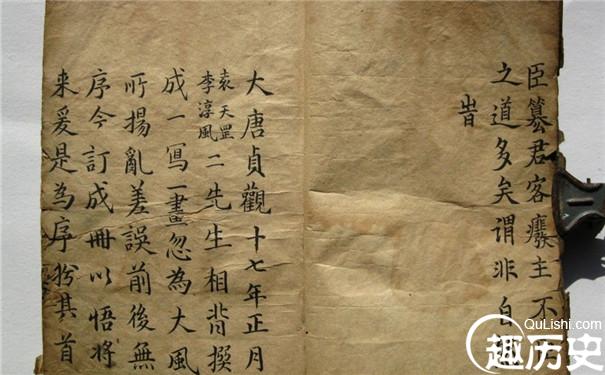 臣篡君客癈主不
之道多矣謂非自
旹
大唐貞觀十七年正月
袁天罡李淳風二先生相背撰
成一寫一畫忽為大風
所揚亂差誤前後無
序今訂成冊以悟將
来爰是為序扵其首
QuLishi.com
趣历史